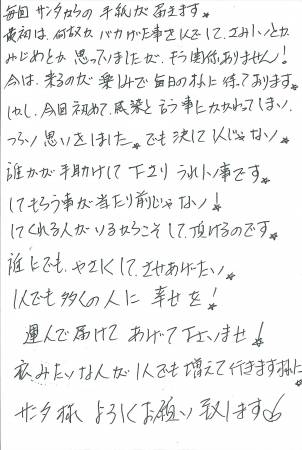 毎回 サンタからの 手紙が 届きます。
最初は、何故かバカげた事をして、さみしいとか
みじめとか 思っていましたが、もう関係ありません!
今は、来るのが 楽しみで 毎日の様に 待っております。
しかし、今回初めて、感染と言う事にかかわってしまい、
つらい思いをしました。でも決して1人じゃない。
誰かが手助けして下さり うれしい事です。
してもらう事が当たり前じゃない!
してくれる人がいるからこそして、頂けるのです。
誰にでも、やさしくして、させあげたい。
1人でも多くの人に 幸せを!
運んで届けて あげて下さいませ!
衣みたいな人が1人でも増えて行きます様に
サンタ様 よろしくお願い致します